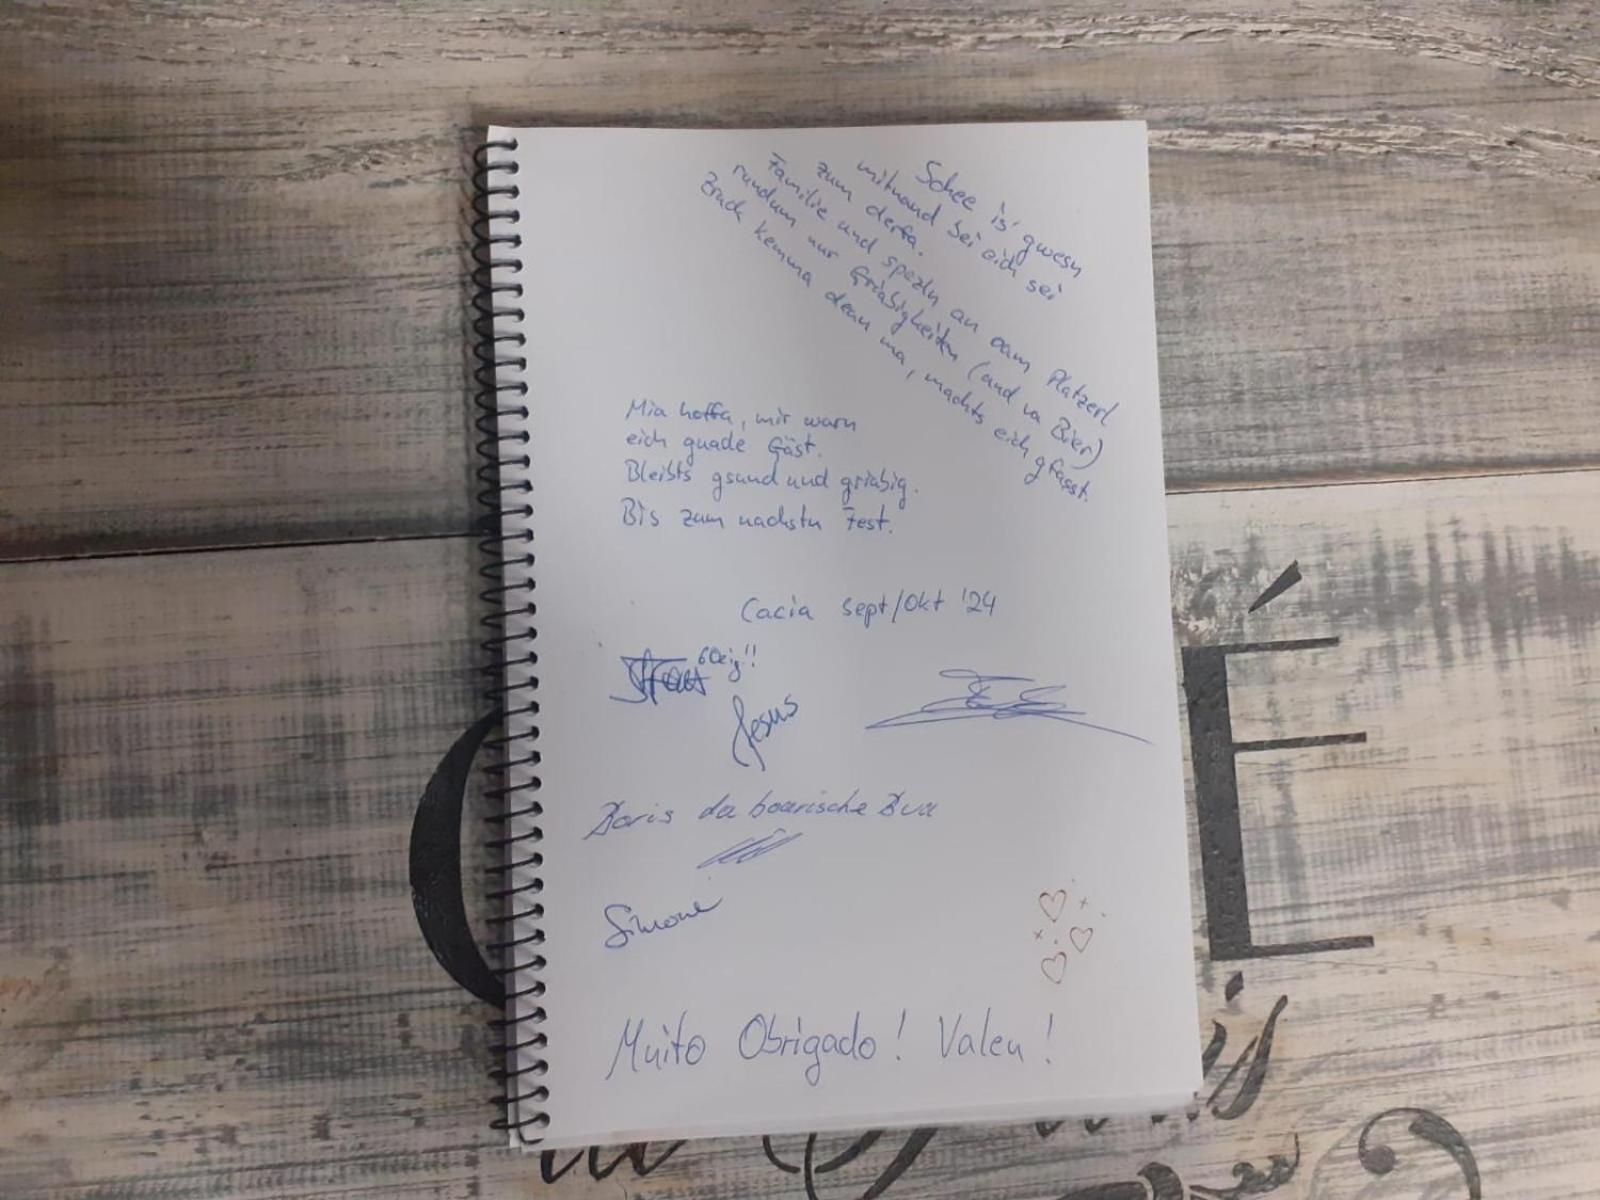 Schee is' gwesn
mitnand bei eich sei
zum derfa.
Familie und spezln an oam Platzerl
rundum nur Griabigkeiten (und va Bier)
Zruck kemma dean ma, machts eich gfasst.
Mia hoffa, mir warn
eich guade Gäst.
Bleibts gsund und griabig.
Bis zum nachstn Fest.
Cacia sept/Okt '24
60zig!!
Jesus
Boris da boarische Bua
Simone
Muito Obrigado! Valeu!
É